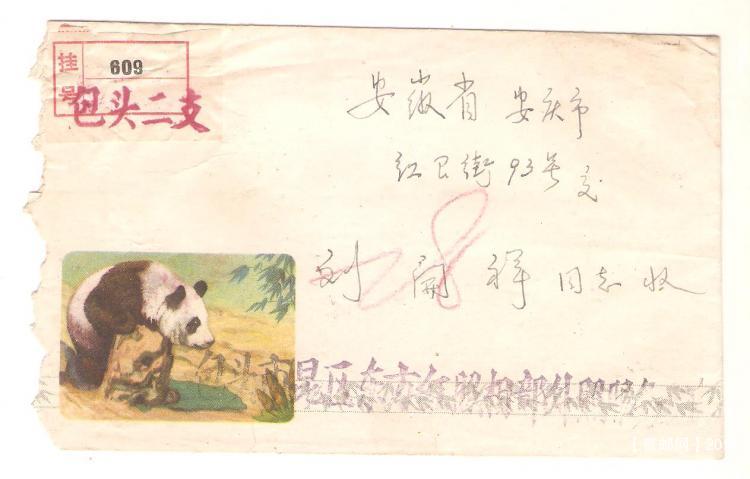 挂号
609
包头二支
安徽省 安庆市
红卫街93号交
刘开祥 同志 收
28
包头市昆区东方红照相部